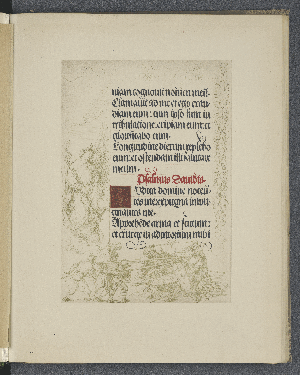 niam cognovit nomen meū.
Clamavit ad me et ego exau-
diam eum: cum ipso sum in
tribulatione: eripiam eum: et
glorificabo eum.
Longitudine dierum replebo
eum: et ostendam illi salutare
meum.
Psalmus David.
Iudica domine nocen-
tes me: expugna impu-
gnantes me.
Apprehēde arma et scutum:
et exurge in adiutorium mihi